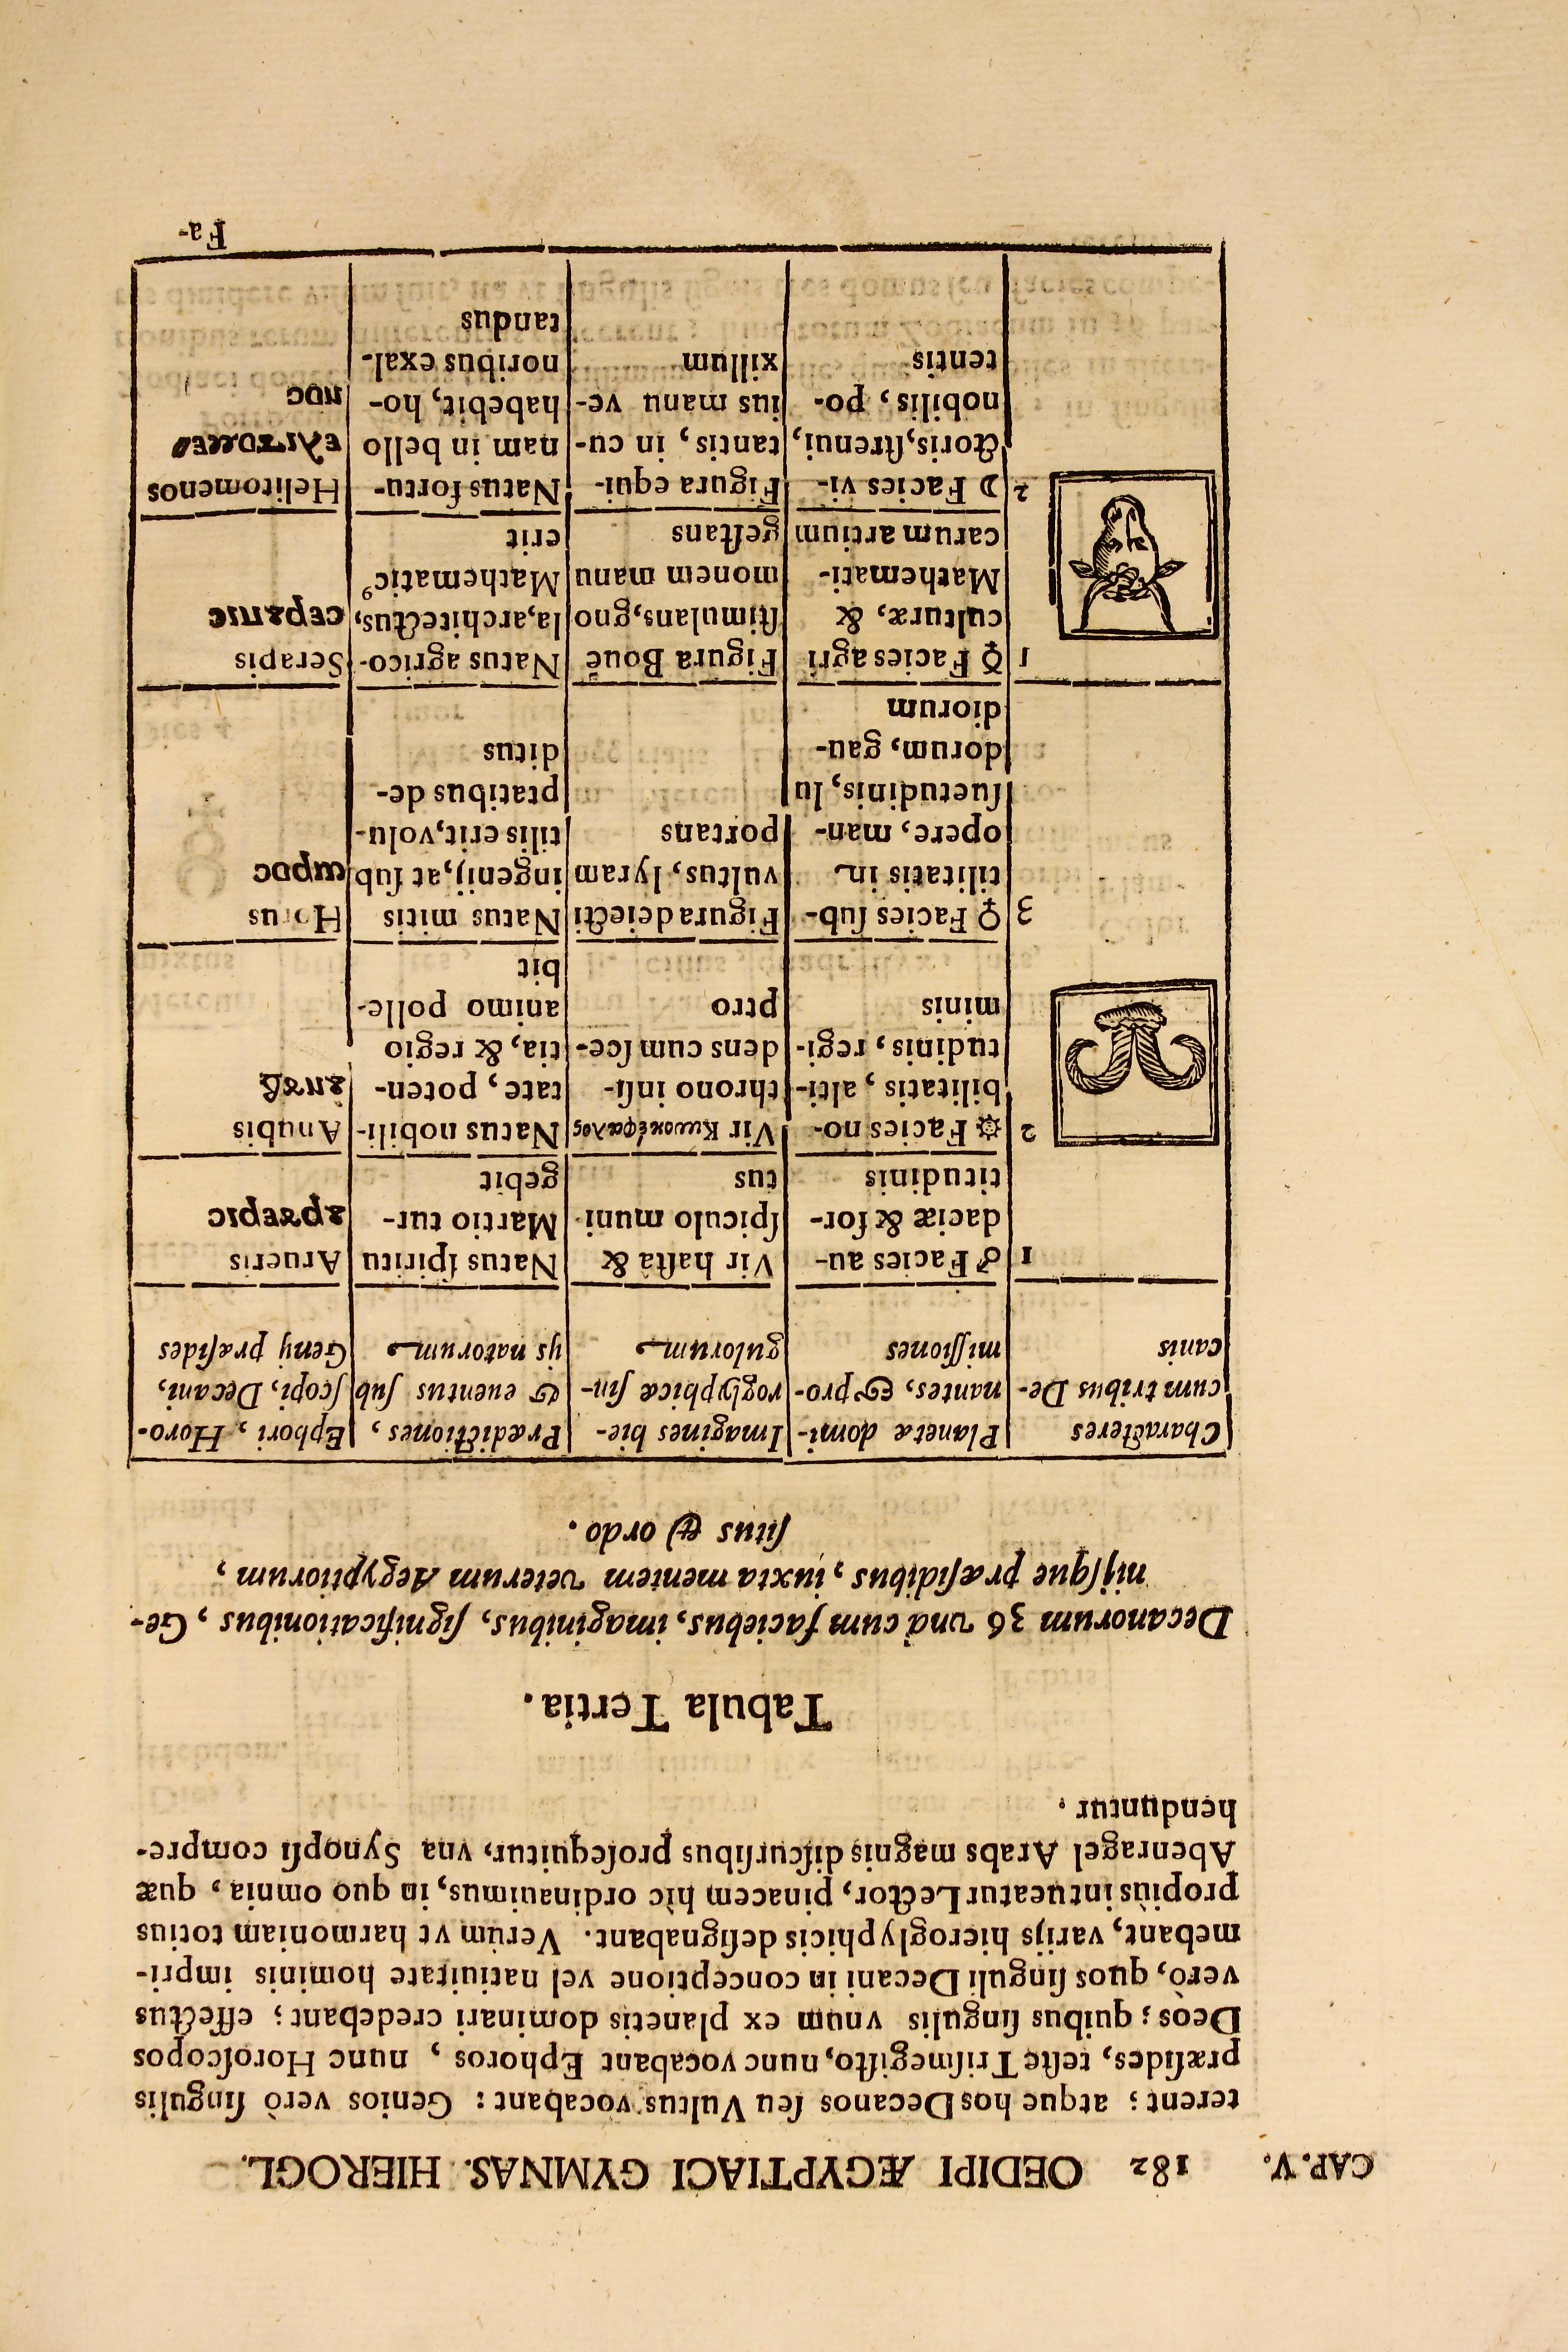 CAP. V. 182 OEDIPI ÆGYPTIACI GYMNAS. HIEROGL.
terent; atque hos Decanos ſeu Vultus vocabant: Genios verò ſingulis
præſides, teſte Triſmegiſto, nunc vocabant Ephoros, nunc Horoſcopos
Deòs; quibus ſingulis vnum ex planetis dominari credebant; effectus
verò, quos ſinguli Decani in conceptione vel natiuitate hominis impri-
mebant, varijs hieroglyphicis deſignabant. Verùm vt harmoniam totius
propiùs intueatur Lector, pinacem hìc ordinauimus, in quo omnia, quæ
Abenragel Arabs magnis diſcurſibus proſequitur, vna Synopſi compre-
henduntur.
Tabula Tertia.
Decanorum 36 vnà cum faciebus, imaginibus, ſignificationibus, Ge-
nijſque præſidibus, iuxta mentem veterum Aegyptiorum,
ſitus & ordo.
Characteres
cum tribus De-
canis
Planetæ domi-
nantes, & pro-
miſſiones
Imagines hie-
roglyphicæ ſin-
gulorum
Prædictiones,
& euentus ſub
ijs natorum
Ephori, Horo-
ſcopi, Decani,
Genij præſides
1
♂ Facies au-
daciæ & for-
titudinis
Vir haſta &
ſpiculo muni
tus
Natus ſpiritu
Martio tur-
gebit
Arueris
ⲁⲣⲟⲩⲉⲣⲓⲥ
2
☼ Facies no-
bilitatis, alti-
tudinis, regi-
minis
Vir Κυνοκέφαλος
throno inſi-
dens cum ſce-
ptro
Natus nobili-
tate, poten-
tia, & regio
animo polle-
bit
Anubis
3
♀ Facies ſub-
tilitatis in
opere, man-
ſuetudinis, lu
dorum, gau-
diorum
Figura deiecti
vultus, lyram
portans
Natus mitis
ingenij, at ſub
tilis erit, volu-
ptatibus de-
ditus
Horus
ⲱⲣⲟⲥ
1
☿ Facies agri
culturæ, &
Mathemati-
carum artium
Figura Bouē
ſtimulans, gno
monem manu
geſtans
Natus agrico-
la, architectus,
Mathematicꝰ
erit
Serapis
ⲥⲉⲣⲁⲡⲓⲥ
2
☽ Facies vi-
ctoris, ſtrenui,
nobilis, po-
tentis
Figura equi-
tantis, in cu-
ius manu ve-
xillum
Natus fortu-
nam in bello
habebit, ho-
noribus exal-
tandus
Helitomenos
ⲉⲗⲓⲧⲟⲙⲉⲛⲟⲥ
Fa-